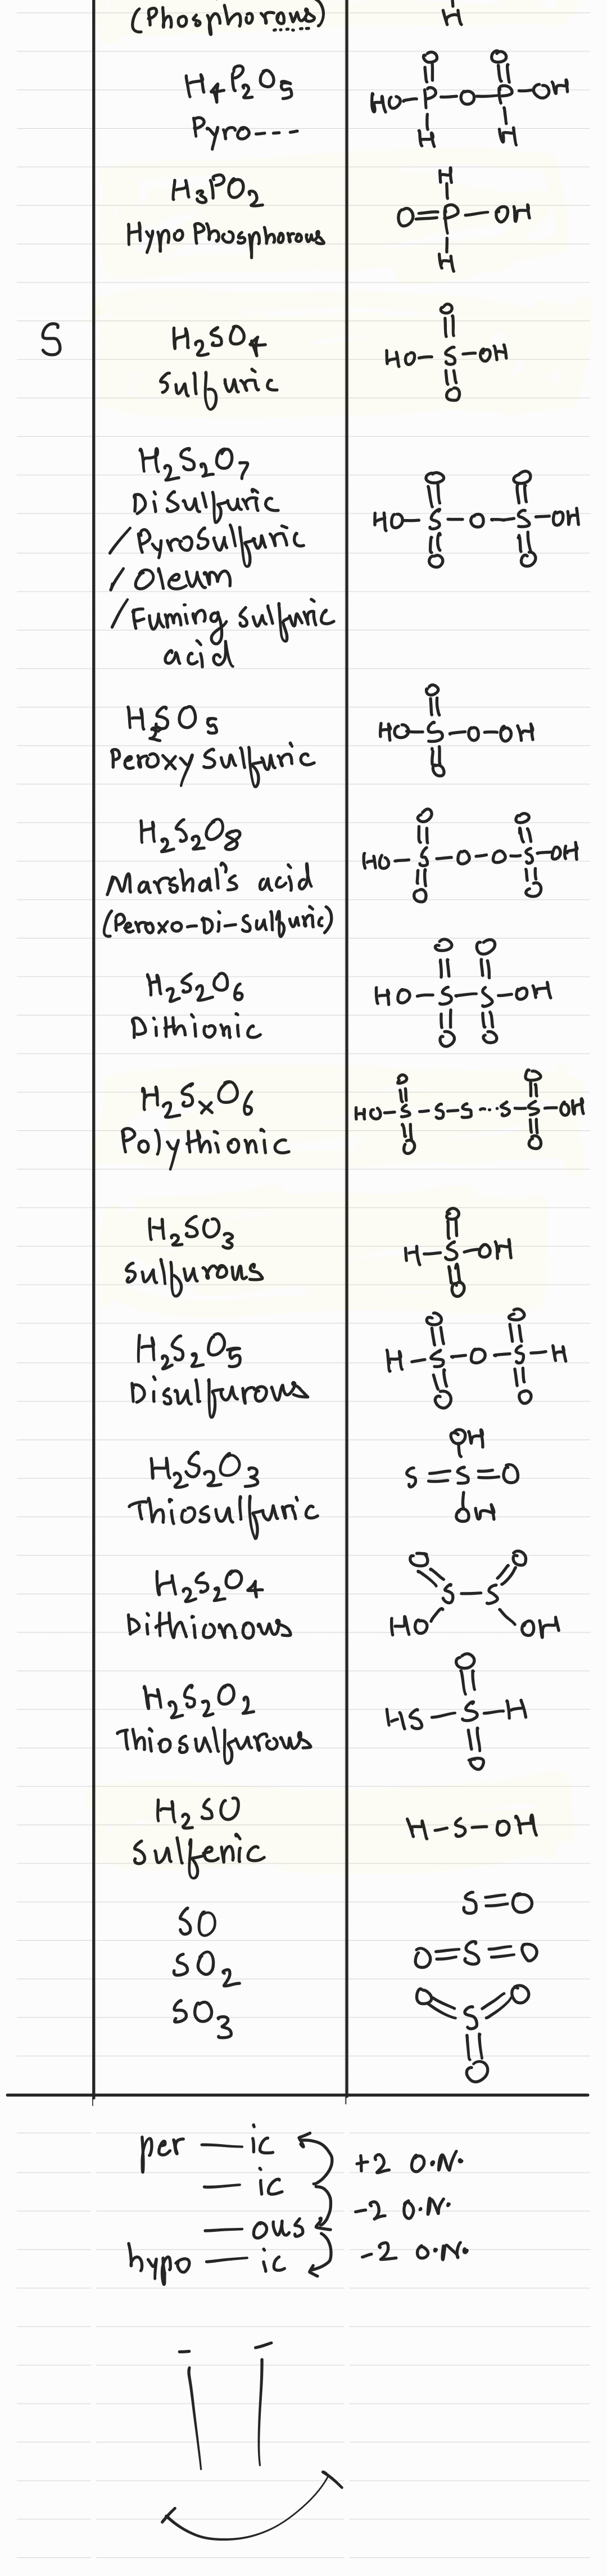 (Phosphorous) H
H₄P₂O₅
Pyro---
O O
HO-P-O-P-OH
H H
H₃PO₂
Hypo Phosphorous
H
O=P-OH
H
S
H₂SO₄
Sulfuric
O
HO-S-OH
O
H₂S₂O₇
DiSulfuric
/PyroSulfuric
/Oleum
/Fuming sulfuric
acid
O O
HO-S-O-S-OH
O O
H₂SO₅
Peroxy Sulfuric
O
HO-S-O-OH
O
H₂S₂O₈
Marshal's acid
(Peroxo-Di-Sulfuric)
O O
HO-S-O-O-S-OH
O O
H₂S₂O₆
Dithionic
O O
HO-S-S-OH
O O
H₂SₓO₆
Polythionic
O O
HO-S-S-S---S-S-OH
O O
H₂SO₃
Sulfurous
O
H-S-OH
O
H₂S₂O₅
Disulfurous
O O
H-S-O-S-H
O O
H₂S₂O₃
Thiosulfuric
OH
S=S=O
OH
H₂S₂O₄
Dithionous
O O
S-S
HO OH
H₂S₂O₂
Thiosulfurous
O
HS-S-H
O
H₂SO
Sulfenic
H-S-OH
SO S=O
SO₂ O=S=O
SO₃
O O
S
O
per — ic
+2 O.N.
— ic
-2 O.N.
— ous
-2 O.N.
hypo — ic